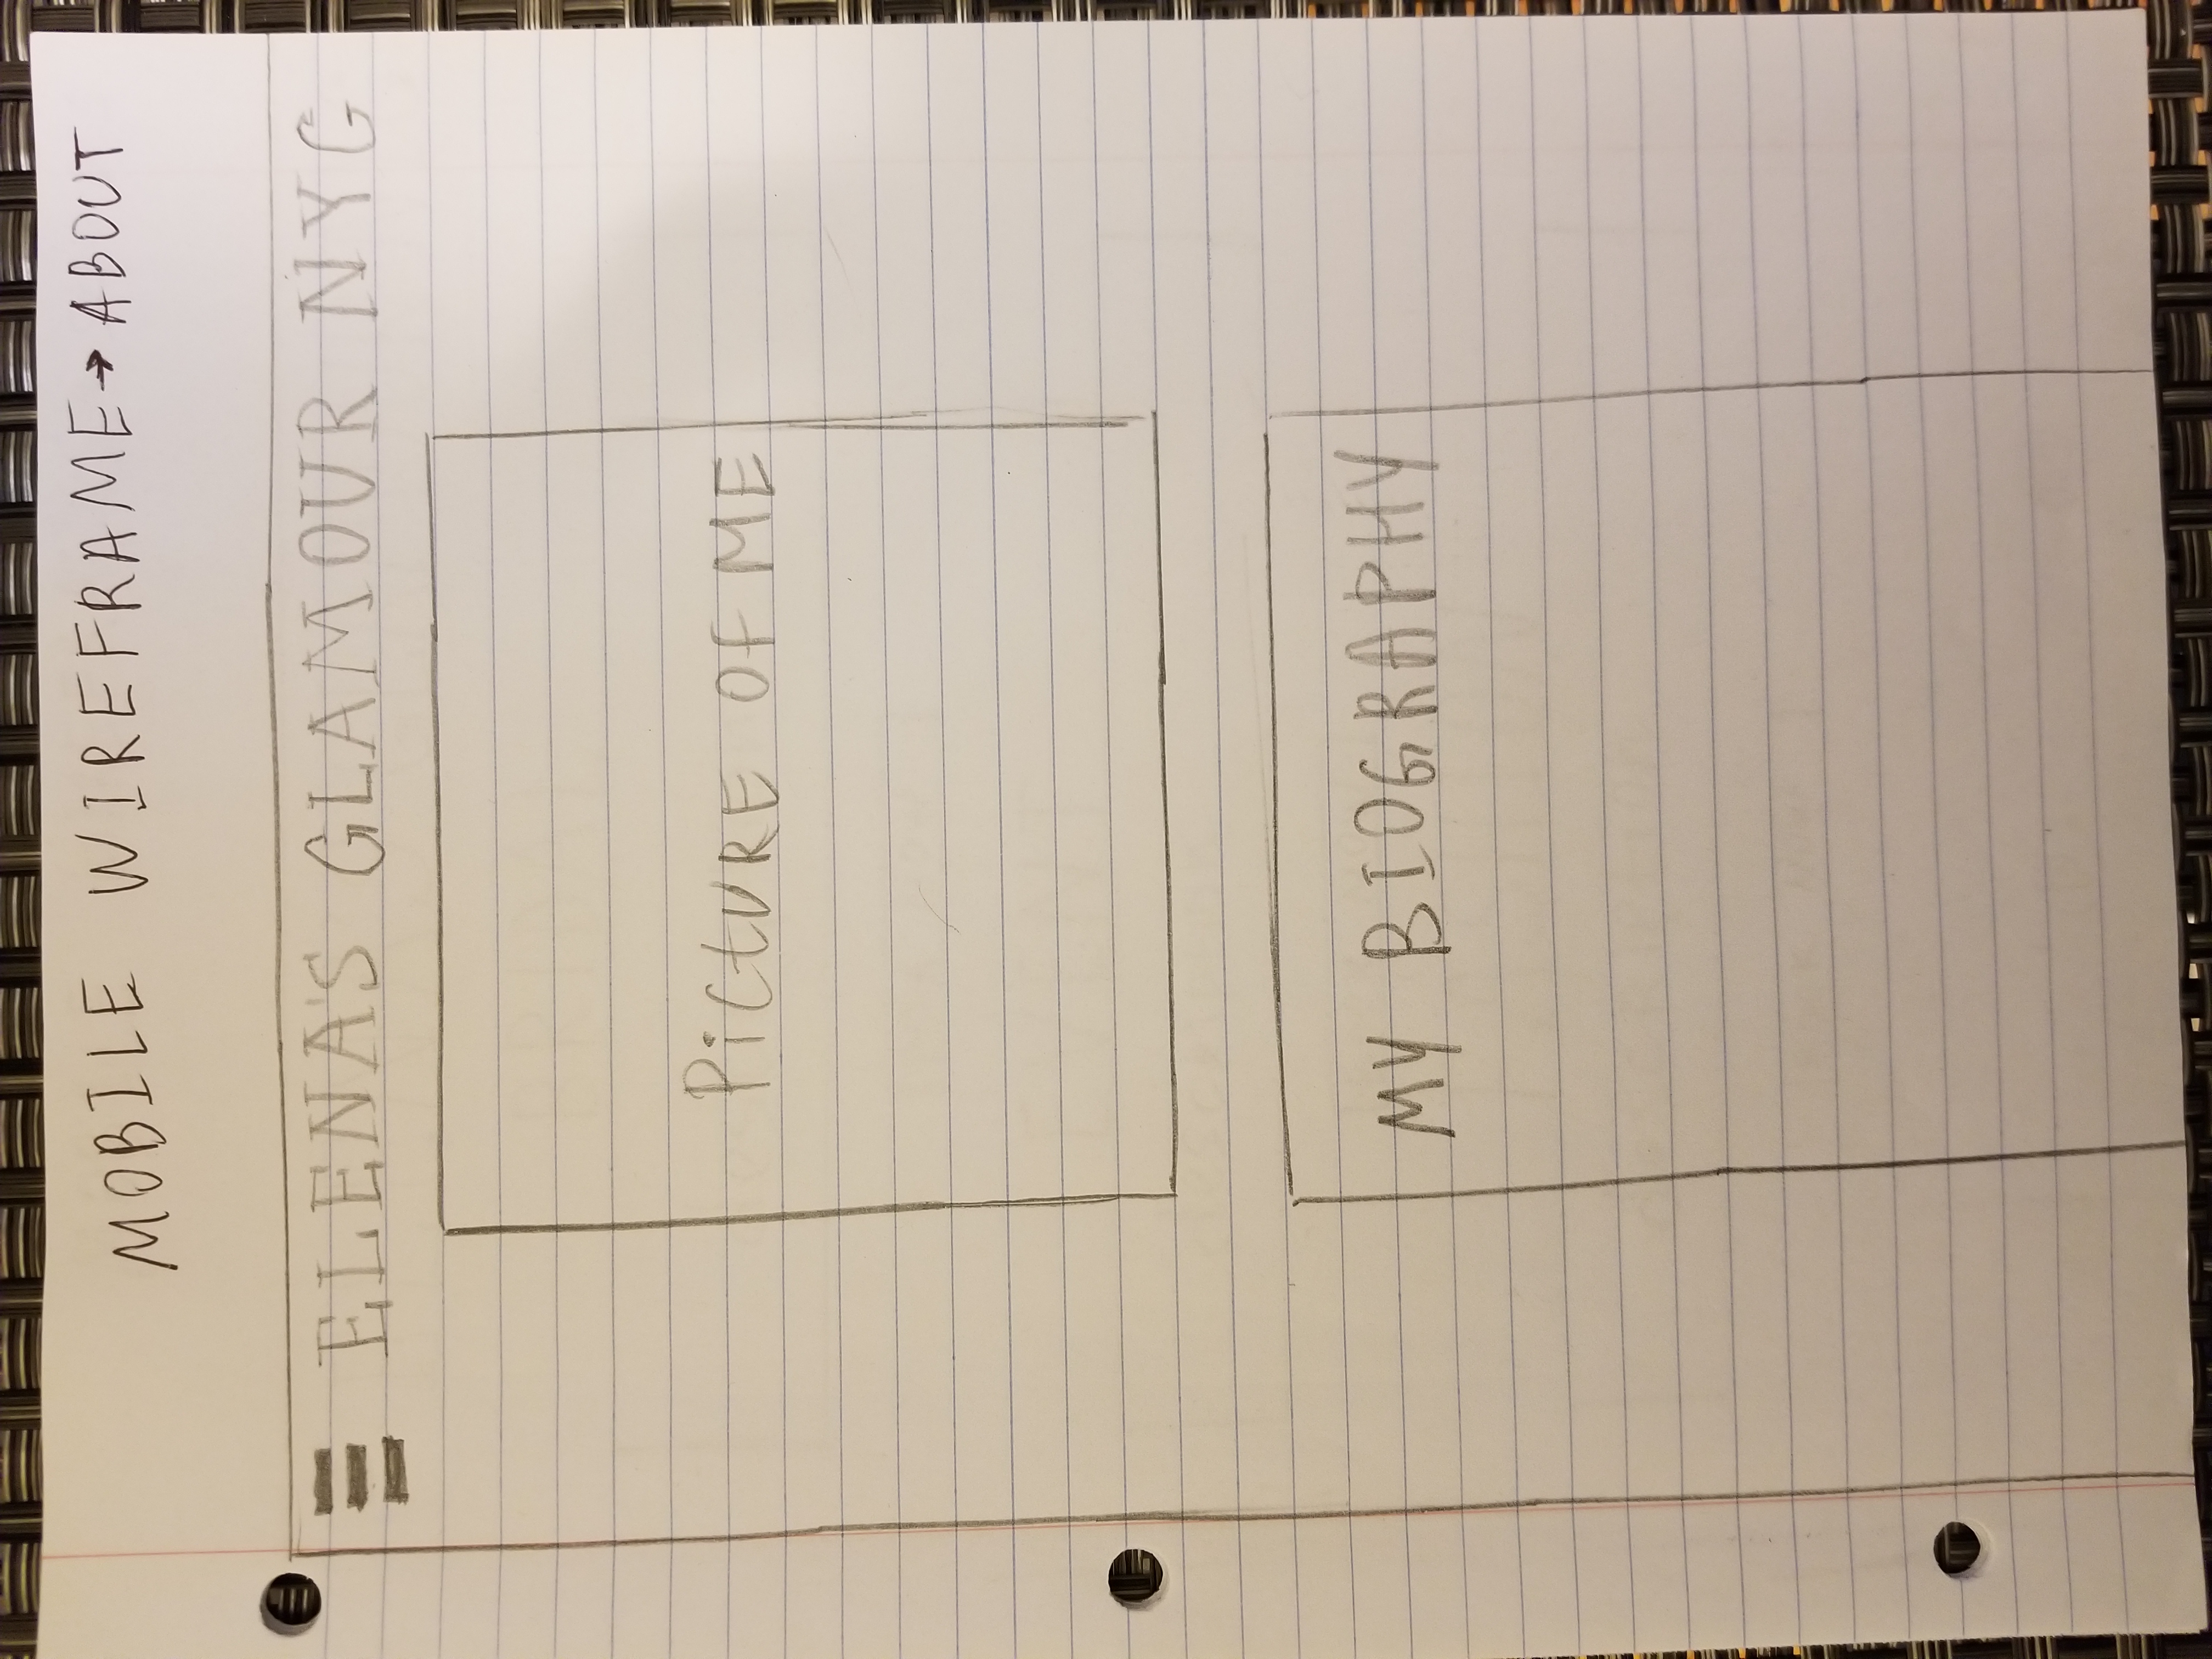 MOBILE WIREFRAME → ABOUT
ELENA'S GLAMOUR NYC
PiCtURE OF ME
MY BIOGRAPHY